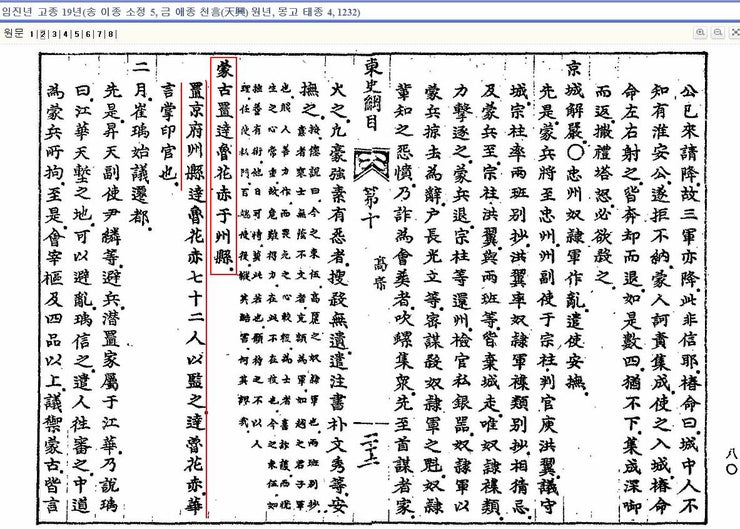 임진년 고종 19년(송 이종 소정 5, 금 애종 천흥(天興) 원년, 몽고 태종 4, 1232)
원문 1 |2|3|4|5|6|7|8|
公已來請降故三軍亦降此非信耶椿命曰城中人不
知有淮安公遂拒不納蒙人訶責集成使之入城椿命
命左右射之皆奔却而退如是數四猶不下集成深啣
而返撒禮塔怒必欲殺之
京城解嚴○忠州奴隷軍作亂遣使安撫
先是蒙兵將至忠州州副使于宗柱判官庾洪翼議守
城宗柱率兩班別抄洪翼率奴隷軍襍類別抄相猜忌
及蒙兵至宗柱洪翼與兩班等皆棄城走唯奴隷襍類
力擊逐之蒙兵退宗柱等還州檢官私銀器奴隷軍以
蒙兵掠去為辭戶長光立等密謀殺奴隷軍之魁奴隷
輩知之忿憤乃詐為會葬者吹螺集衆先至首謀者家
東史綱目 第十 高宗
火之凡豪強素有惡者搜殺無遺遣注書朴文秀等安
撫之
蒙古置達魯花赤于州縣
置京府州縣達魯花赤七十二人以監之達魯花赤華
言掌印官也
二月崔瑀始議遷都
先是昇天副使尹繗等避兵潛置家屬于江華乃說瑀
曰江華天塹之地可以避亂瑀信之遣人往審之中道
為蒙兵所拘至是會宰樞及四品以上議禦蒙古皆言
八〇